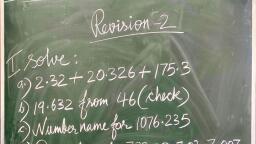 Revision-2
I. Solve:
a) 2.32 + 20.326 + 175.3
b) 19.632 from 46 (check)
c) Number name for 1076.235